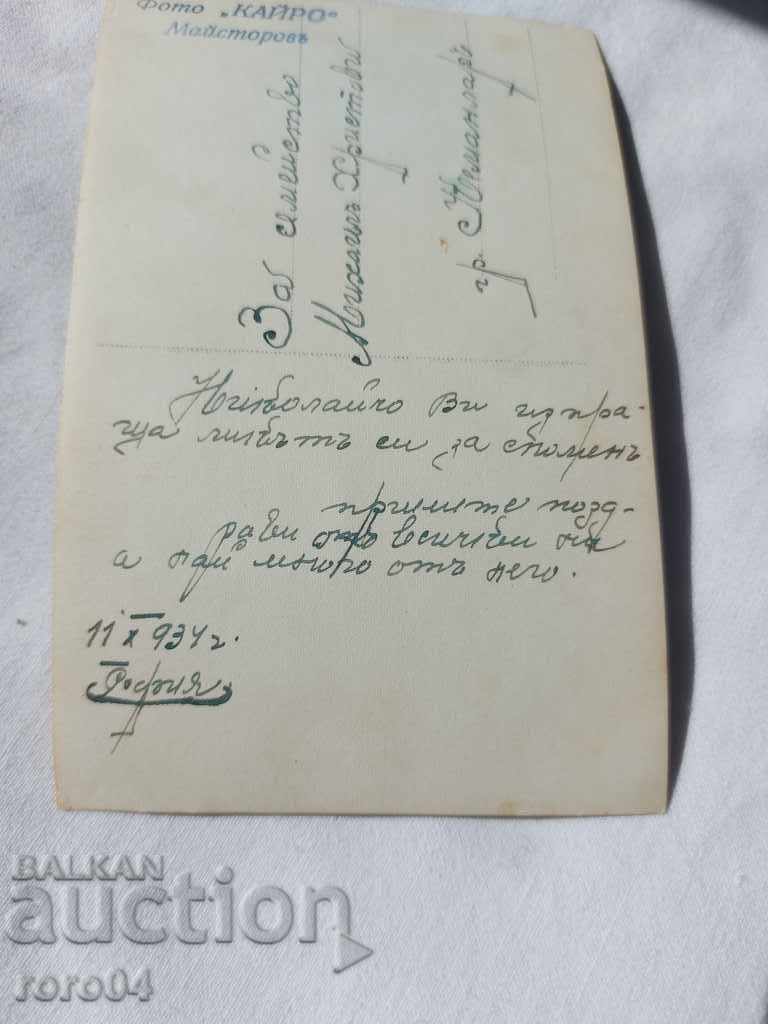 Фото „КАЙРО“
Майсторовъ
За семейство
Михаилъ Христови
гр. Харманлӣ
Николайчо Ви изпра-
ща ликътъ си за споменъ
приемте позд-
рави отъ всички ни
а най много отъ него.
11 X 934 г.
София
BALKAN
auction
roro04